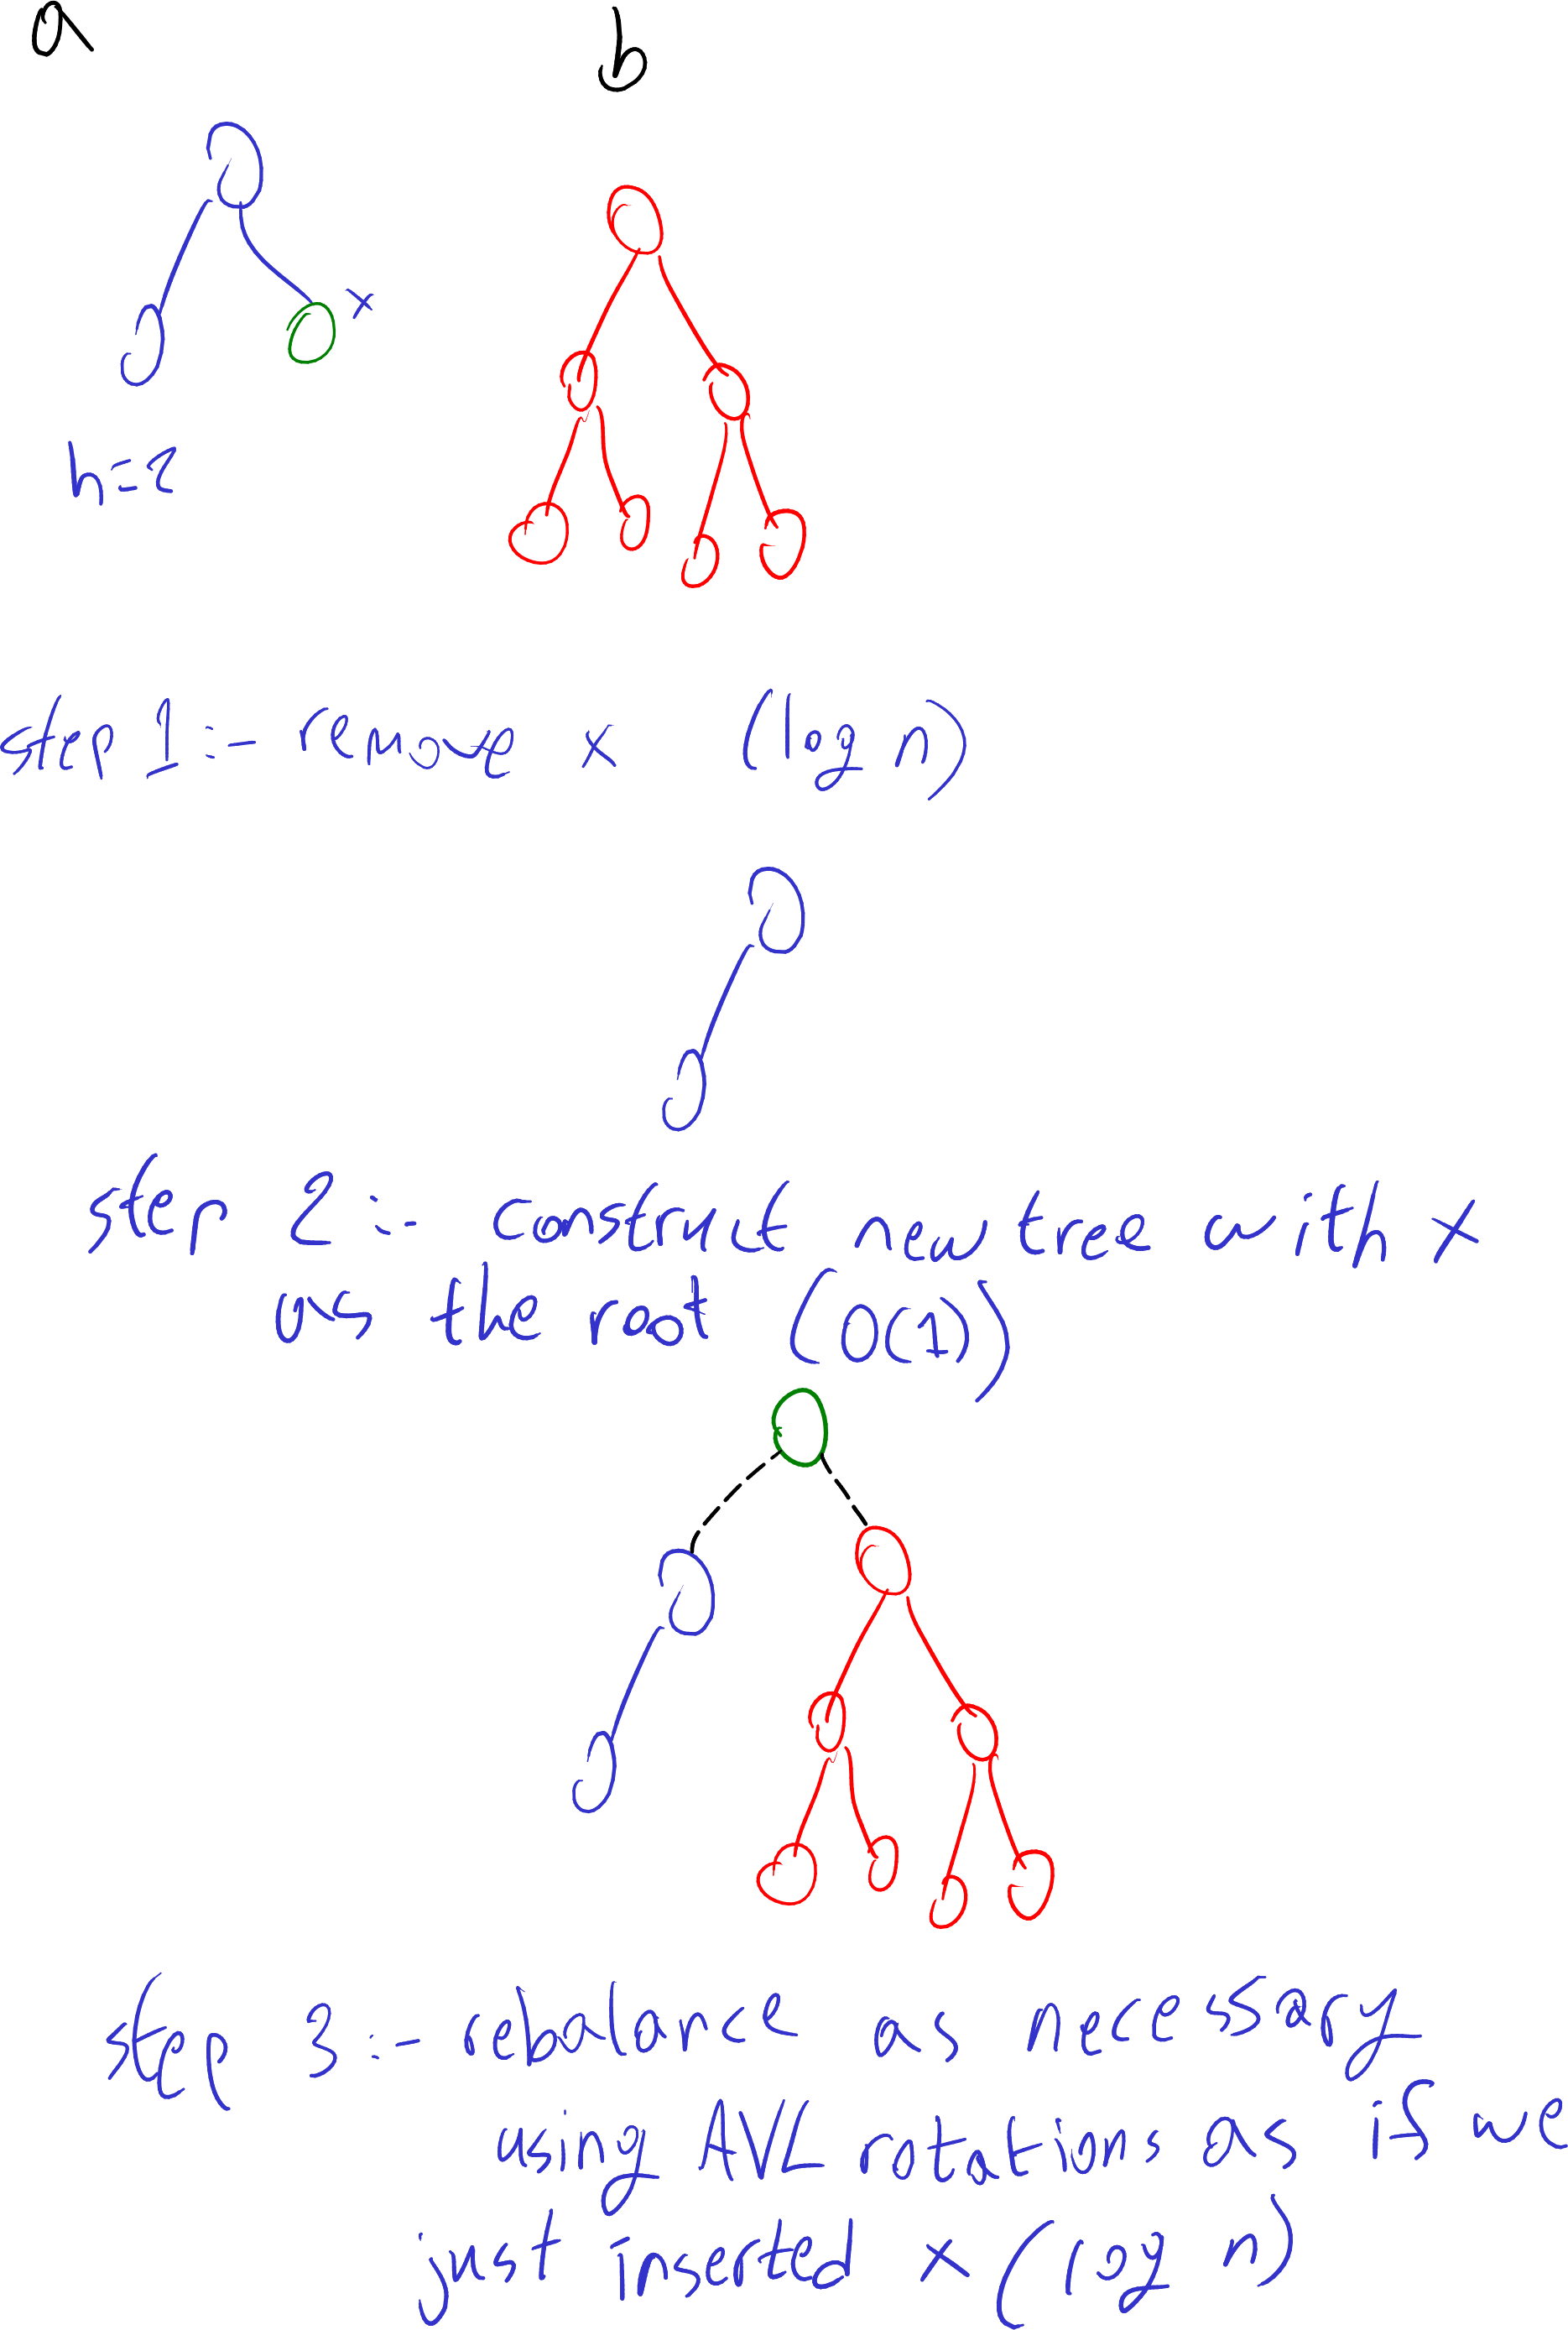 a
b
x
h=2
step 1:- remove x (log n)
step 2:- construct new tree with x
as the root (O(1))
step 3:- rebalance as necessary
using AVL rotations as if we
just inserted x (log n)